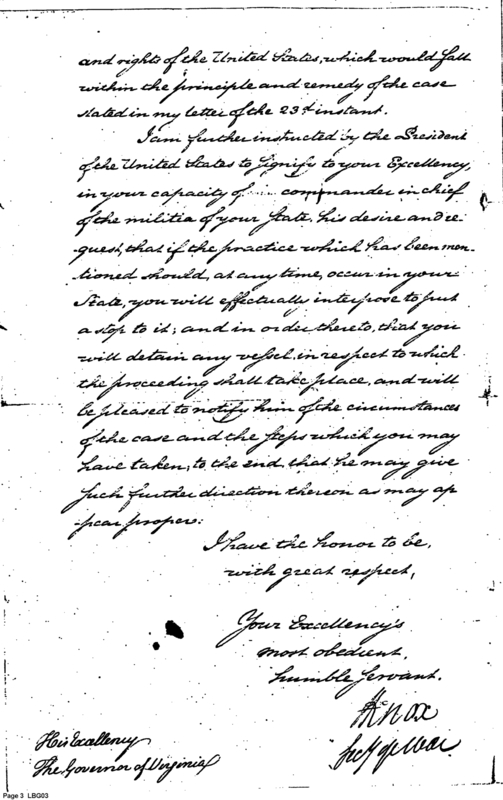 and rights of the United States, which would fall
within the principle and remedy of the case
stated in my letter of the 23d instant.
I am further instructed by the President
of the United States to signify to your Excellency,
in your capacity of commander in chief
of the militia of your State, his desire and re-
quest, that if the practice which has been men-
tioned should, at any time, occur in your
State, you will effectually interpose to put
a stop to it; and in order thereto, that you
will detain any vessel, in respect to which
the proceeding shall take place, and will
be pleased to notify him of the circumstances
of the case and the steps which you may
have taken, to the end, that he may give
such further direction thereon as may ap
-pear proper:
I have the honor to be,
with great respect,
Your Excellency's
most obedient,
humble servant.
HKnox
Secy of War.
His Excellency
The Governor of Virginia
Page 3 LBG03